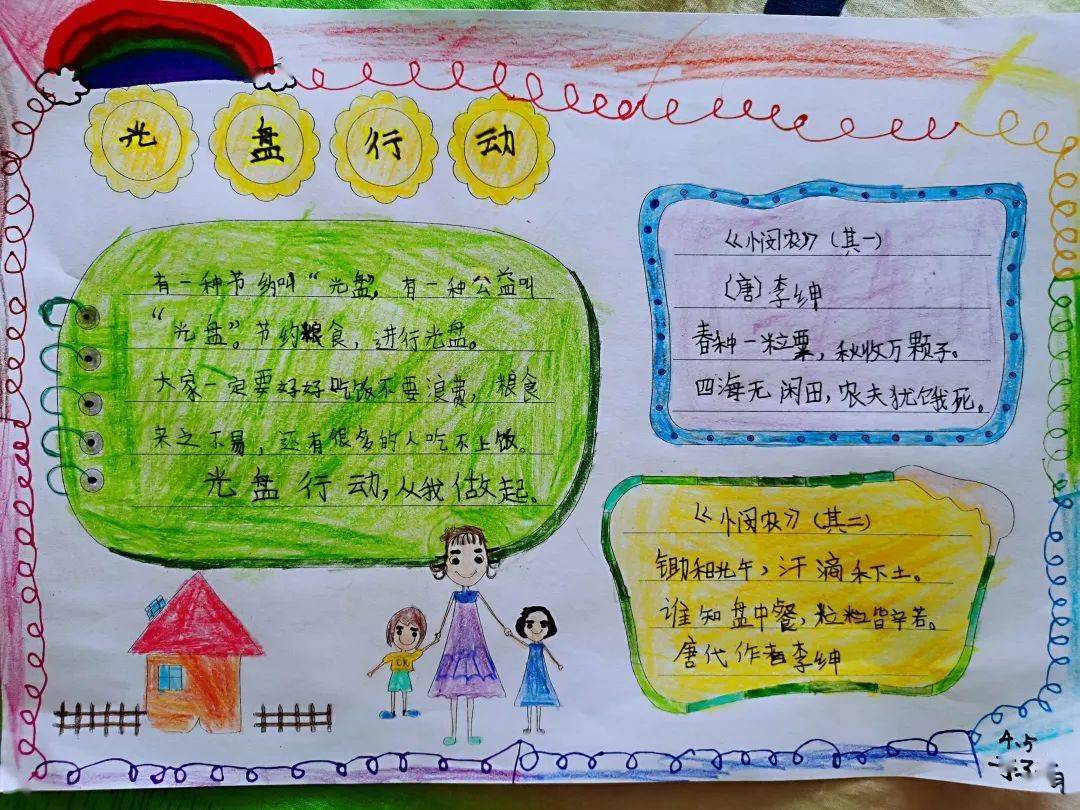 光盘行动
有一种节约叫“光盘”，有一种公益叫
“光盘”。节约粮食，进行光盘。
大家一定要好好吃饭不要浪费，粮食
来之不易，还有很多的人吃不上饭。
光盘行动，从我做起。
《悯农》（其一）
〔唐〕李绅
春种一粒粟，秋收万颗子。
四海无闲田，农夫犹饿死。
《悯农》（其二）
锄禾日当午，汗滴禾下土。
谁知盘中餐，粒粒皆辛苦。
唐代作者李绅
CK
4.5